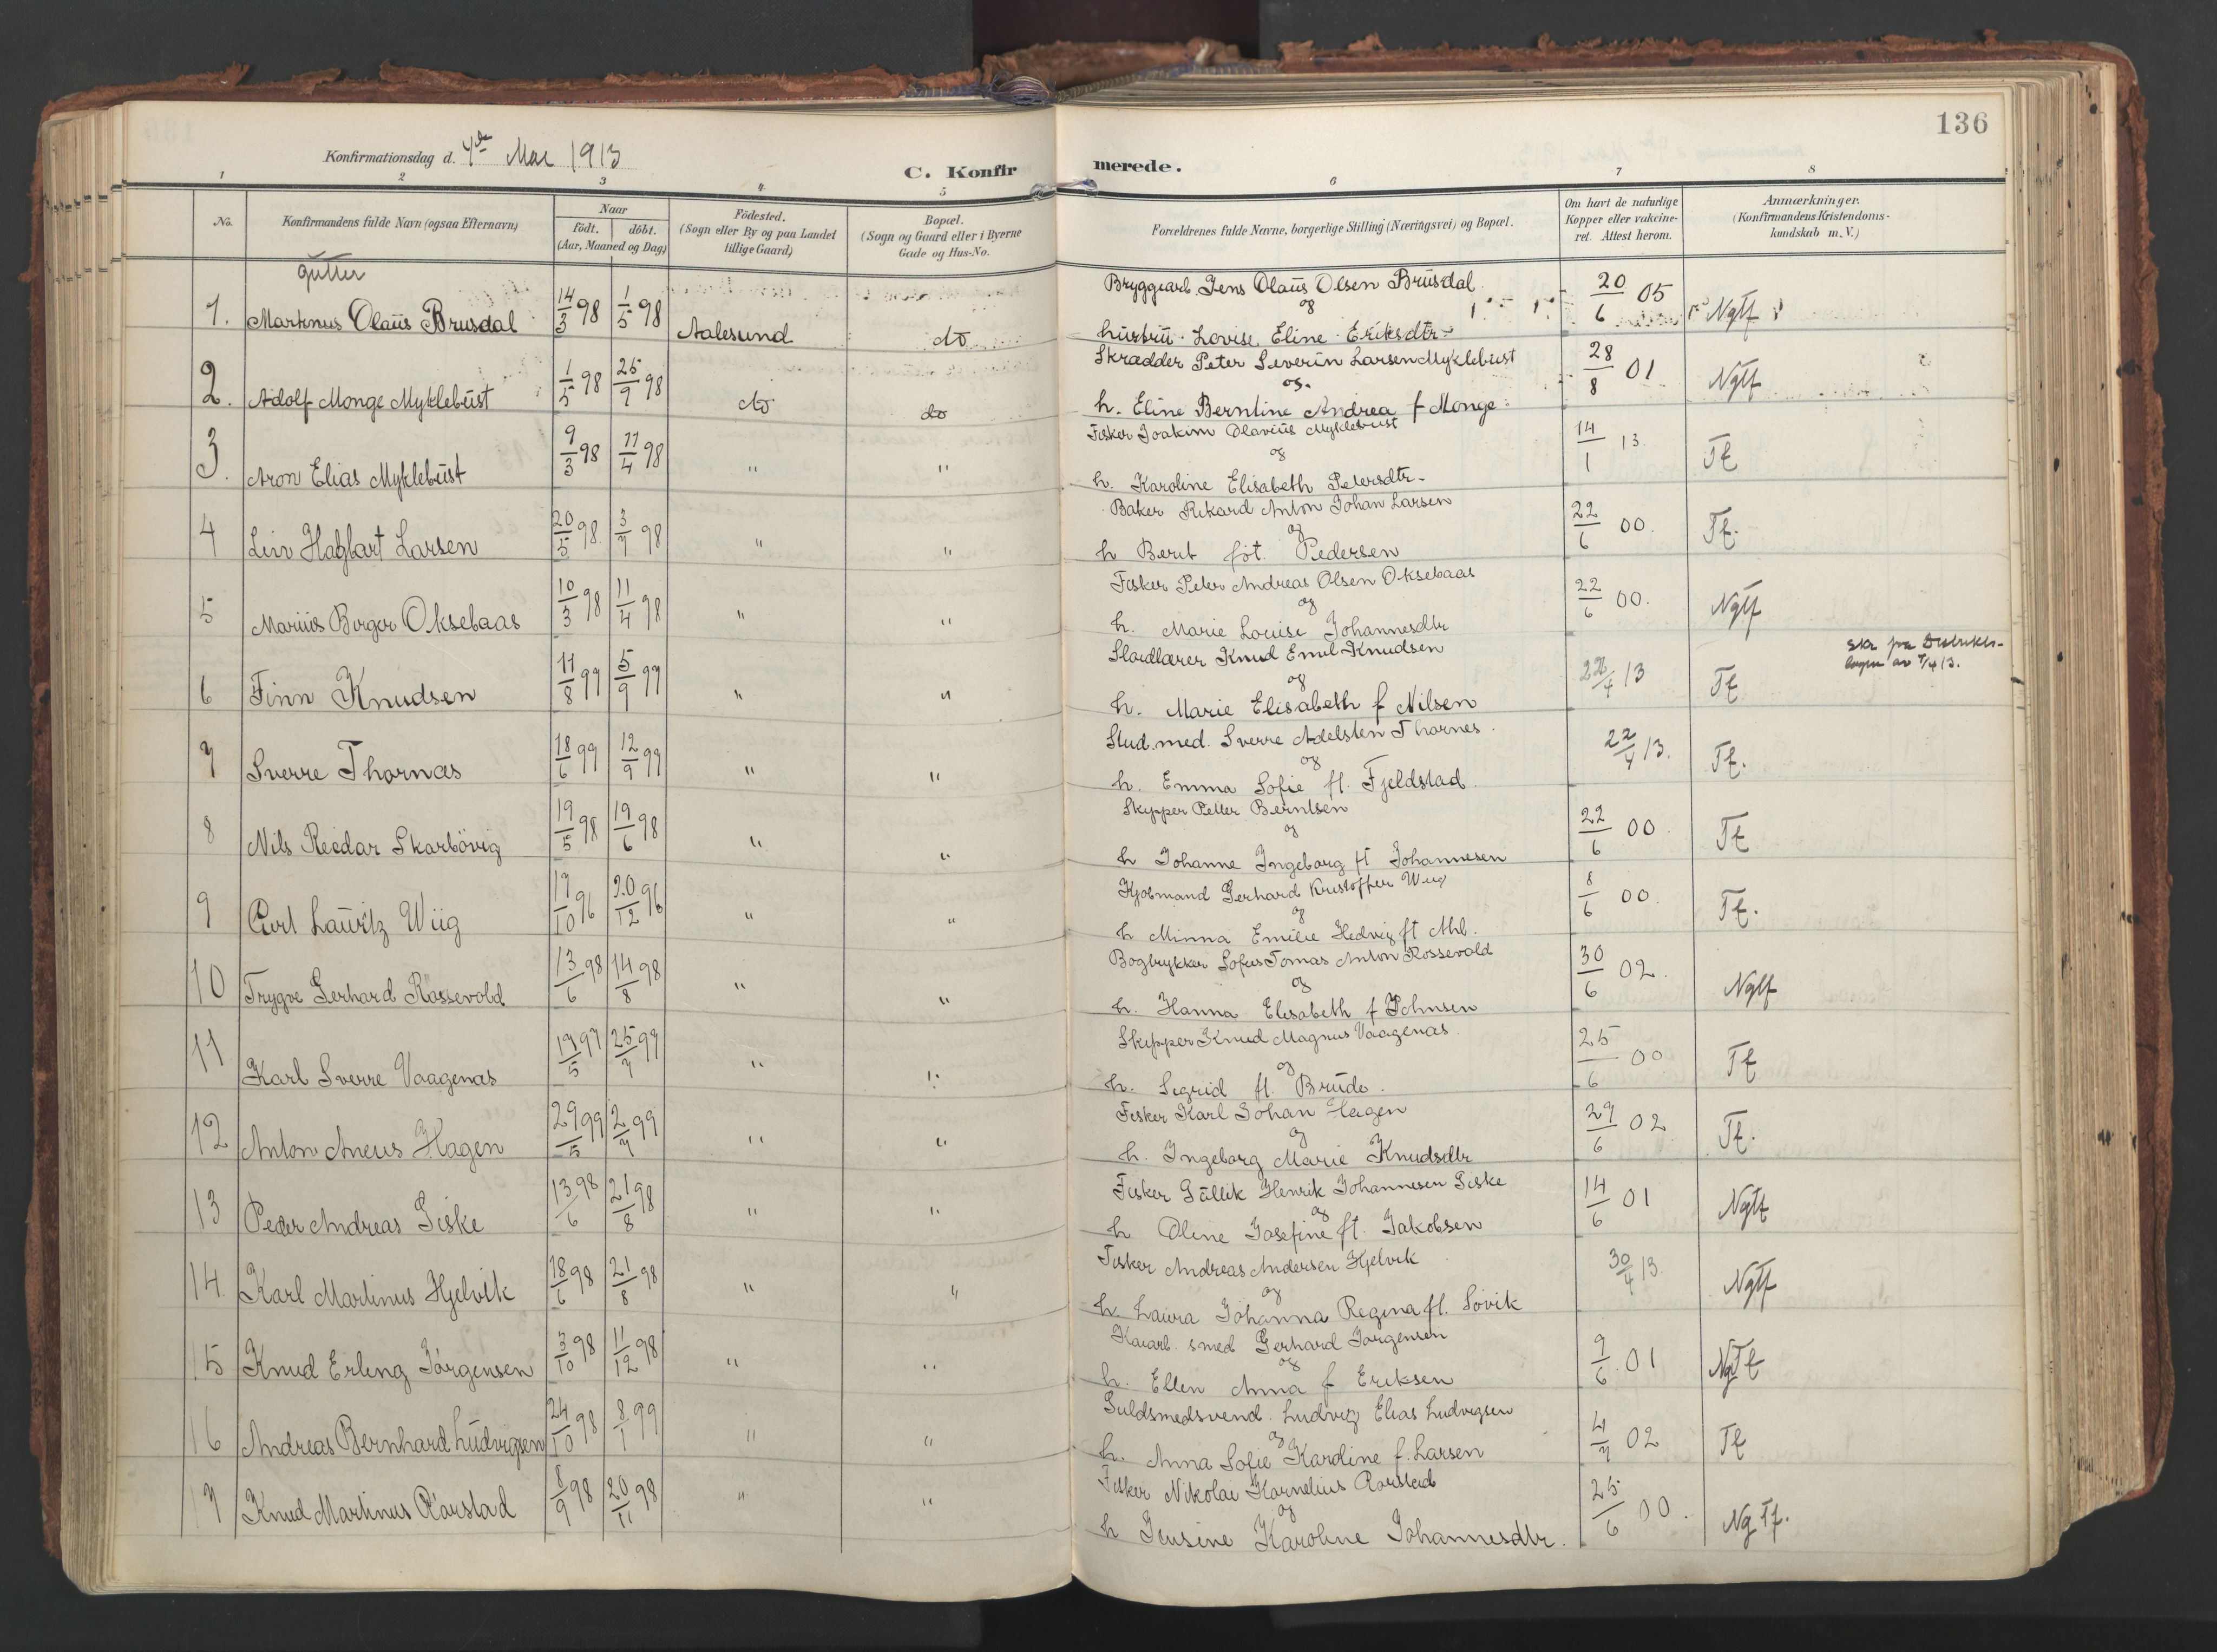 136
Konfirmationsdag d. 4de Mai 1913
C. Konfirmerede.
1 2 3 4 5 6 7 8
No. Konfirmandens fulde Navn (ogsaa Efternavn) Naar født. døbt. (Aar, Maaned og Dag) Fødested. (Sogn eller By og paa Landet tillige Gaard) Bopæl. (Sogn og Gaard eller i Byerne Gade og Hus-No. Forældrenes fulde Navne, borgerlige Stilling (Næringsvei) og Bopæl. Om havt de naturlige Kopper eller vakcineret. Attest herom. Anmærkninger. (Konfirmandens Kristendomskundskab m. V.)
Gutter
1. Martinus Olaüs Brusdal 14/3 98 1/5 98 Aalesund do Bryggearb. Jens Olaüs Olsen Brüsdal og hüstrü Lovise Eline Eriksdtr. 20/6 05 Ngtf
2. Adolf Monge Myklebüst 1/5 98 25/9 98 do do Skrædder Peter Severin Larsen Myklebust og h. Eline Berntine Andrea f Monge 28/8 01 Ngtf
3. Aron Elias Myklebüst 9/3 98 11/4 98 " " Fisker Joakim Olaviüs Myklebust og h. Karoline Elisabeth Petersdtr. 14/1 13. Tf
4 Hagbart Larsen 20/5 98 3/7 98 " " Baker Rikard Anton Johan Larsen og h Berit føt. Pedersen 22/6 00. Tf.
5 Mariüs Birger Oksebaas 10/3 98 11/4 98 " " Fisker Peter Andreas Olsen Oksebaas og h. Marie Louise Johannesdtr 22/6 00. Ngtf
6 Finn Knudsen 11/8 99 5/9 99 " " Sløidlærer Knud Emil Knudsen og h. Marie Elisabeth f Nilsen 22/4 13 Tf
Skr. fra Distriktslægen av 7/4 13.
7 Sverre Thornæs 18/6 99 12/9 99 " " Stud. med. Sverre Adelsten Thornes og h. Emma Sofie ft. Fjeldstad 22/4 13. Tf.
8 Nils Reidar Skarbövig 19/5 98 19/6 98 " " Skipper Petter Berntsen og h Johanne Ingeborg ft Johannesen 22/6 00 Tf
9 Laüritz Wiig 17/10 96 20/12 96 " " Kjøbmand Gerhard Kristoffer Wiig og h Minna Emilie Hedvig ft 8/6 00. Tf.
10 Trygve Gerhard Rossevold 13/6 98 14/8 98 " " Bogtrykker Sofus Tomas Anton Rossevold og h. Hanna Elisabeth f Johnsen 30/6 02. Ngtf
11 Karl Sverre Vaagenæs 17/5 97 25/7 97 " " Skipper Knud Magnus Vaagenæs og h. Sigrid ft. Brüde. 25/6 00 Tf
12 Anton Aneus Hagen 29/5 99 2/7 99 " " Fisker Karl Johan Hagen og h. Ingeborg Marie Knudsdtr 29/6 02 Tf.
13 Peder Andreas Giske 13/6 98 21/8 98 " " Fisker Güllik Henrik Johannesen Giske og h Oline Josefine ft. Jakobsen 14/6 01 Ngtf
14. Karl Martinus Hjelvik 18/6 98 21/8 98 " " Fisker Andreas Andersen Hjelvik og h Laura Johanna Regina ft. Søvik 30/4 13. Ngtf
15 Knud Erling Jörgensen 3/10 98 11/12 98 " " smed Gerhard Jørgensen og h. Ellen Anna f Eriksen 9/6 01 NgTf
16 Andreas Bernhard Lüdvigsen 24/10 98 8/1 99 " " Guldsmedsvend. Ludvig Elias Ludvigsen og h. Anna Sofie Karoline f. Larsen 4/7 02 Tf
17 Knud Martinus Rörstad 8/9 98 20/11 98 " " Fisker Nikolai Kornelius Rørstad og h Jensine Karoline Johannesdtr. 25/6 00. Ng Tf.